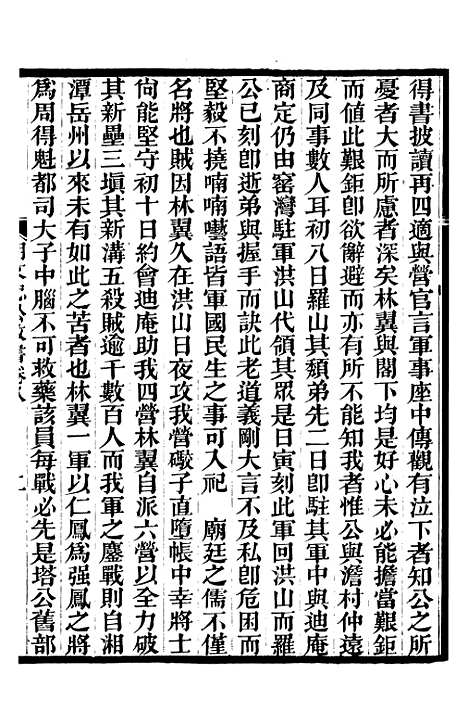 得書披讀再四適與營官言軍事座中傳觀有泣下者知公之所
憂者大而所慮者深矣林翼與閣下均是好心未必能擔當艱鉅
而値此艱鉅卽欲辭避而亦有所不能知我者惟公與澹村仲遠
及同事數人耳初八日羅山其頹弟先二日卽駐其軍中與迪庵
商定仍由窑灣駐軍洪山代領其眾是日寅刻此軍回洪山而羅
公已刻卽逝弟與握手而訣此老道義剛大言不及私卽危困而
堅毅不撓喃喃囈語皆軍國民生之事可入祀　廟廷之儒不僅
名將也賊因林翼久在洪山日夜攻我營礮子直墮帳中幸將士
尙能堅守初十日約會迪庵助我四營林翼自派六營以全力破
其新壘三塡其新溝五殺賊逾千數百人而我軍之鏖戰則自湘
潭岳州以來未有如此之苦者也林翼一軍以仁鳳爲强鳳之將
爲周得魁都司大子中腦不可救藥該員每戰必先是塔公舊部